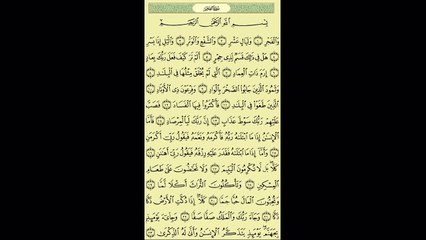 سورة الفجر
بِسْمِ اللَّهِ الرَّحْمَٰنِ الرَّحِيمِ
وَالْفَجْرِ ﴿١﴾ وَلَيَالٍ عَشْرٍ ﴿٢﴾ وَالشَّفْعِ وَالْوَتْرِ ﴿٣﴾ وَاللَّيْلِ إِذَا يَسْرِ
﴿٤﴾ هَلْ فِي ذَٰلِكَ قَسَمٌ لِّذِي حِجْرٍ ﴿٥﴾ أَلَمْ تَرَ كَيْفَ فَعَلَ رَبُّكَ بِعَادٍ
﴿٦﴾ إِرَمَ ذَاتِ الْعِمَادِ ﴿٧﴾ الَّتِي لَمْ يُخْلَقْ مِثْلُهَا فِي الْبِلَادِ ﴿٨﴾
وَثَمُودَ الَّذِينَ جَابُوا الصَّخْرَ بِالْوَادِ ﴿٩﴾ وَفِرْعَوْنَ ذِي الْأَوْتَادِ ﴿١٠﴾
الَّذِينَ طَغَوْا فِي الْبِلَادِ ﴿١١﴾ فَأَكْثَرُوا فِيهَا الْفَسَادَ ﴿١٢﴾ فَصَبَّ
عَلَيْهِمْ رَبُّكَ سَوْطَ عَذَابٍ ﴿١٣﴾ إِنَّ رَبَّكَ لَبِالْمِرْصَادِ ﴿١٤﴾ فَأَمَّا
الْإِنسَانُ إِذَا مَا ابْتَلَاهُ رَبُّهُ فَأَكْرَمَهُ وَنَعَّمَهُ فَيَقُولُ رَبِّي أَكْرَمَنِ
﴿١٥﴾ وَأَمَّا إِذَا مَا ابْتَلَاهُ فَقَدَرَ عَلَيْهِ رِزْقَهُ فَيَقُولُ رَبِّي أَهَانَنِ
﴿١٦﴾ كَلَّا بَل لَّا تُكْرِمُونَ الْيَتِيمَ ﴿١٧﴾ وَلَا تَحَاضُّونَ عَلَىٰ طَعَامِ
الْمِسْكِينِ ﴿١٨﴾ وَتَأْكُلُونَ التُّرَاثَ أَكْلًا لَّمًّا ﴿١٩﴾
وَتُحِبُّونَ الْمَالَ حُبًّا جَمًّا ﴿٢٠﴾ كَلَّا إِذَا دُكَّتِ الْأَرْضُ دَكًّا
دَكًّا ﴿٢١﴾ وَجَاءَ رَبُّكَ وَالْمَلَكُ صَفًّا صَفًّا ﴿٢٢﴾ وَجِيءَ يَوْمَئِذٍ
بِجَهَنَّمَ يَوْمَئِذٍ يَتَذَكَّرُ الْإِنسَانُ وَأَنَّىٰ لَهُ الذِّكْرَىٰ ﴿٢٣﴾